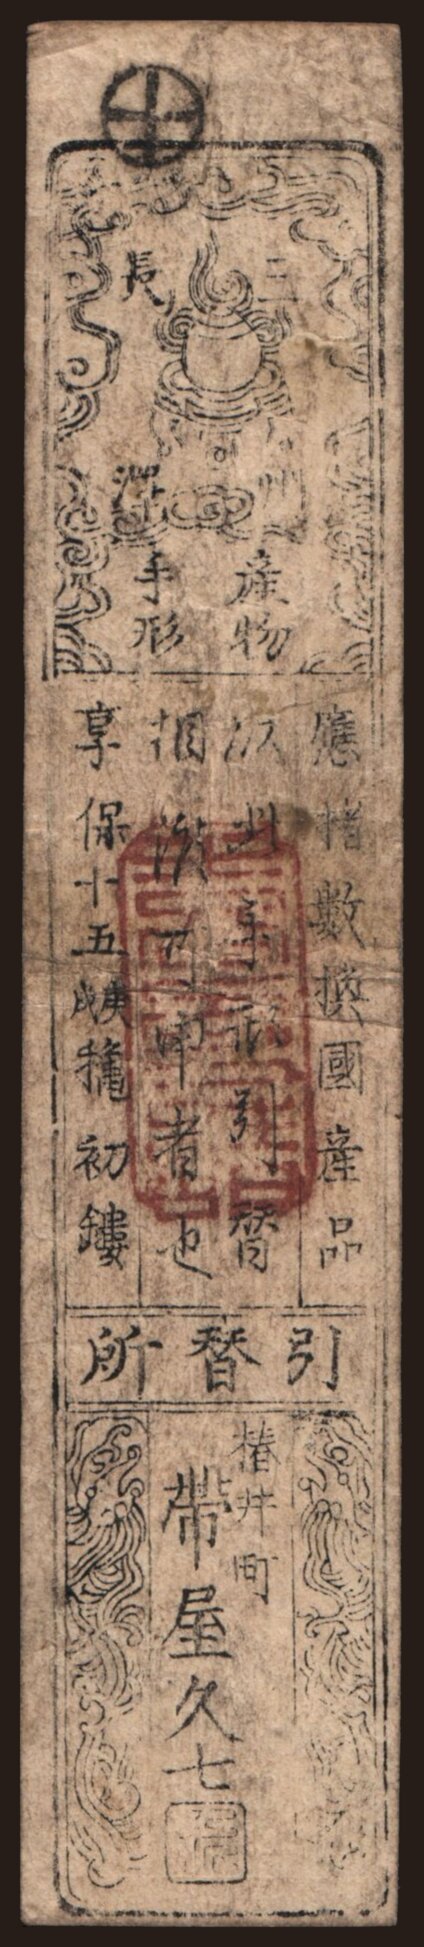 三州産物
長澤手形
應楮數換國産品
以此手形引替
相渡可申者也
享保十五庚戌穐初鏤
引替所
椿井町
帶屋久七